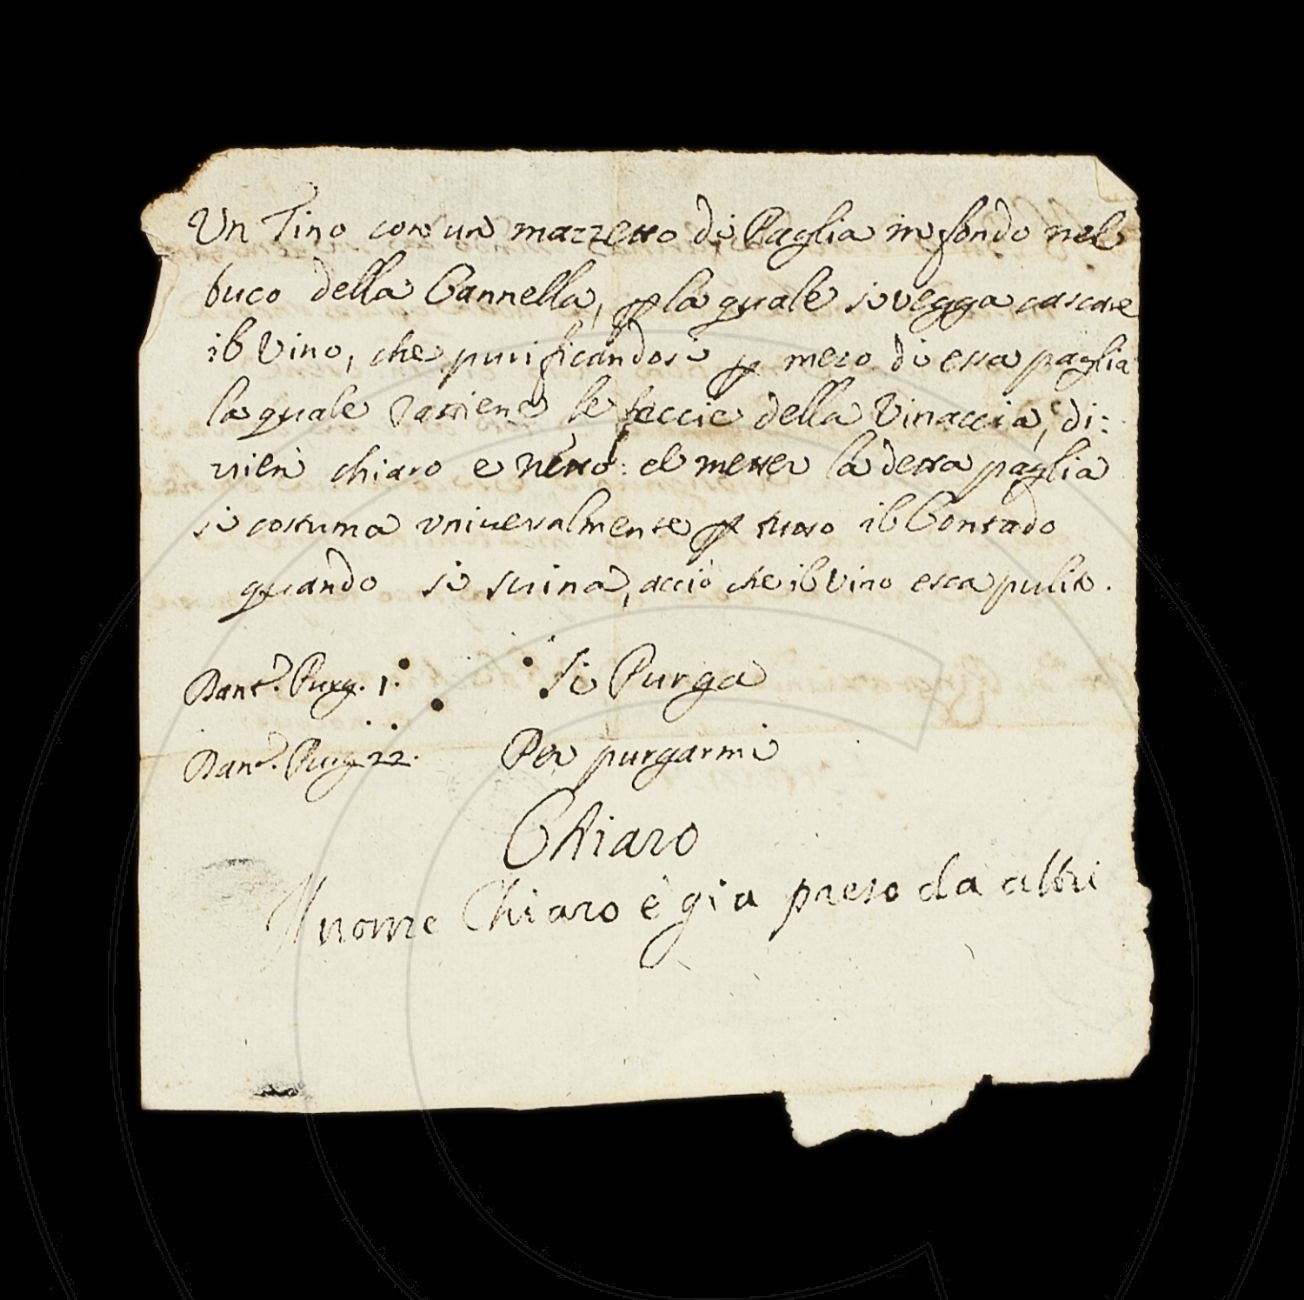 Un Tino con un mazzetto di Paglia in fondo nel
buco della Cannella, p la quale si vegga cascare
il Vino, che purificandosi p mezo di essa paglia
la quale rattiene le feccie della Vinaccia, di:
vien chiaro e netto: el metter la detta paglia
si costuma universalmente p tutto il Contado
quando si suina, acciò che il Vino esca pulito.
Dant. Purg. 1. Si Purga
Dant. Purg. 22. Per purgarmi
Chiaro
Il nome Chiaro è gia preso da altri